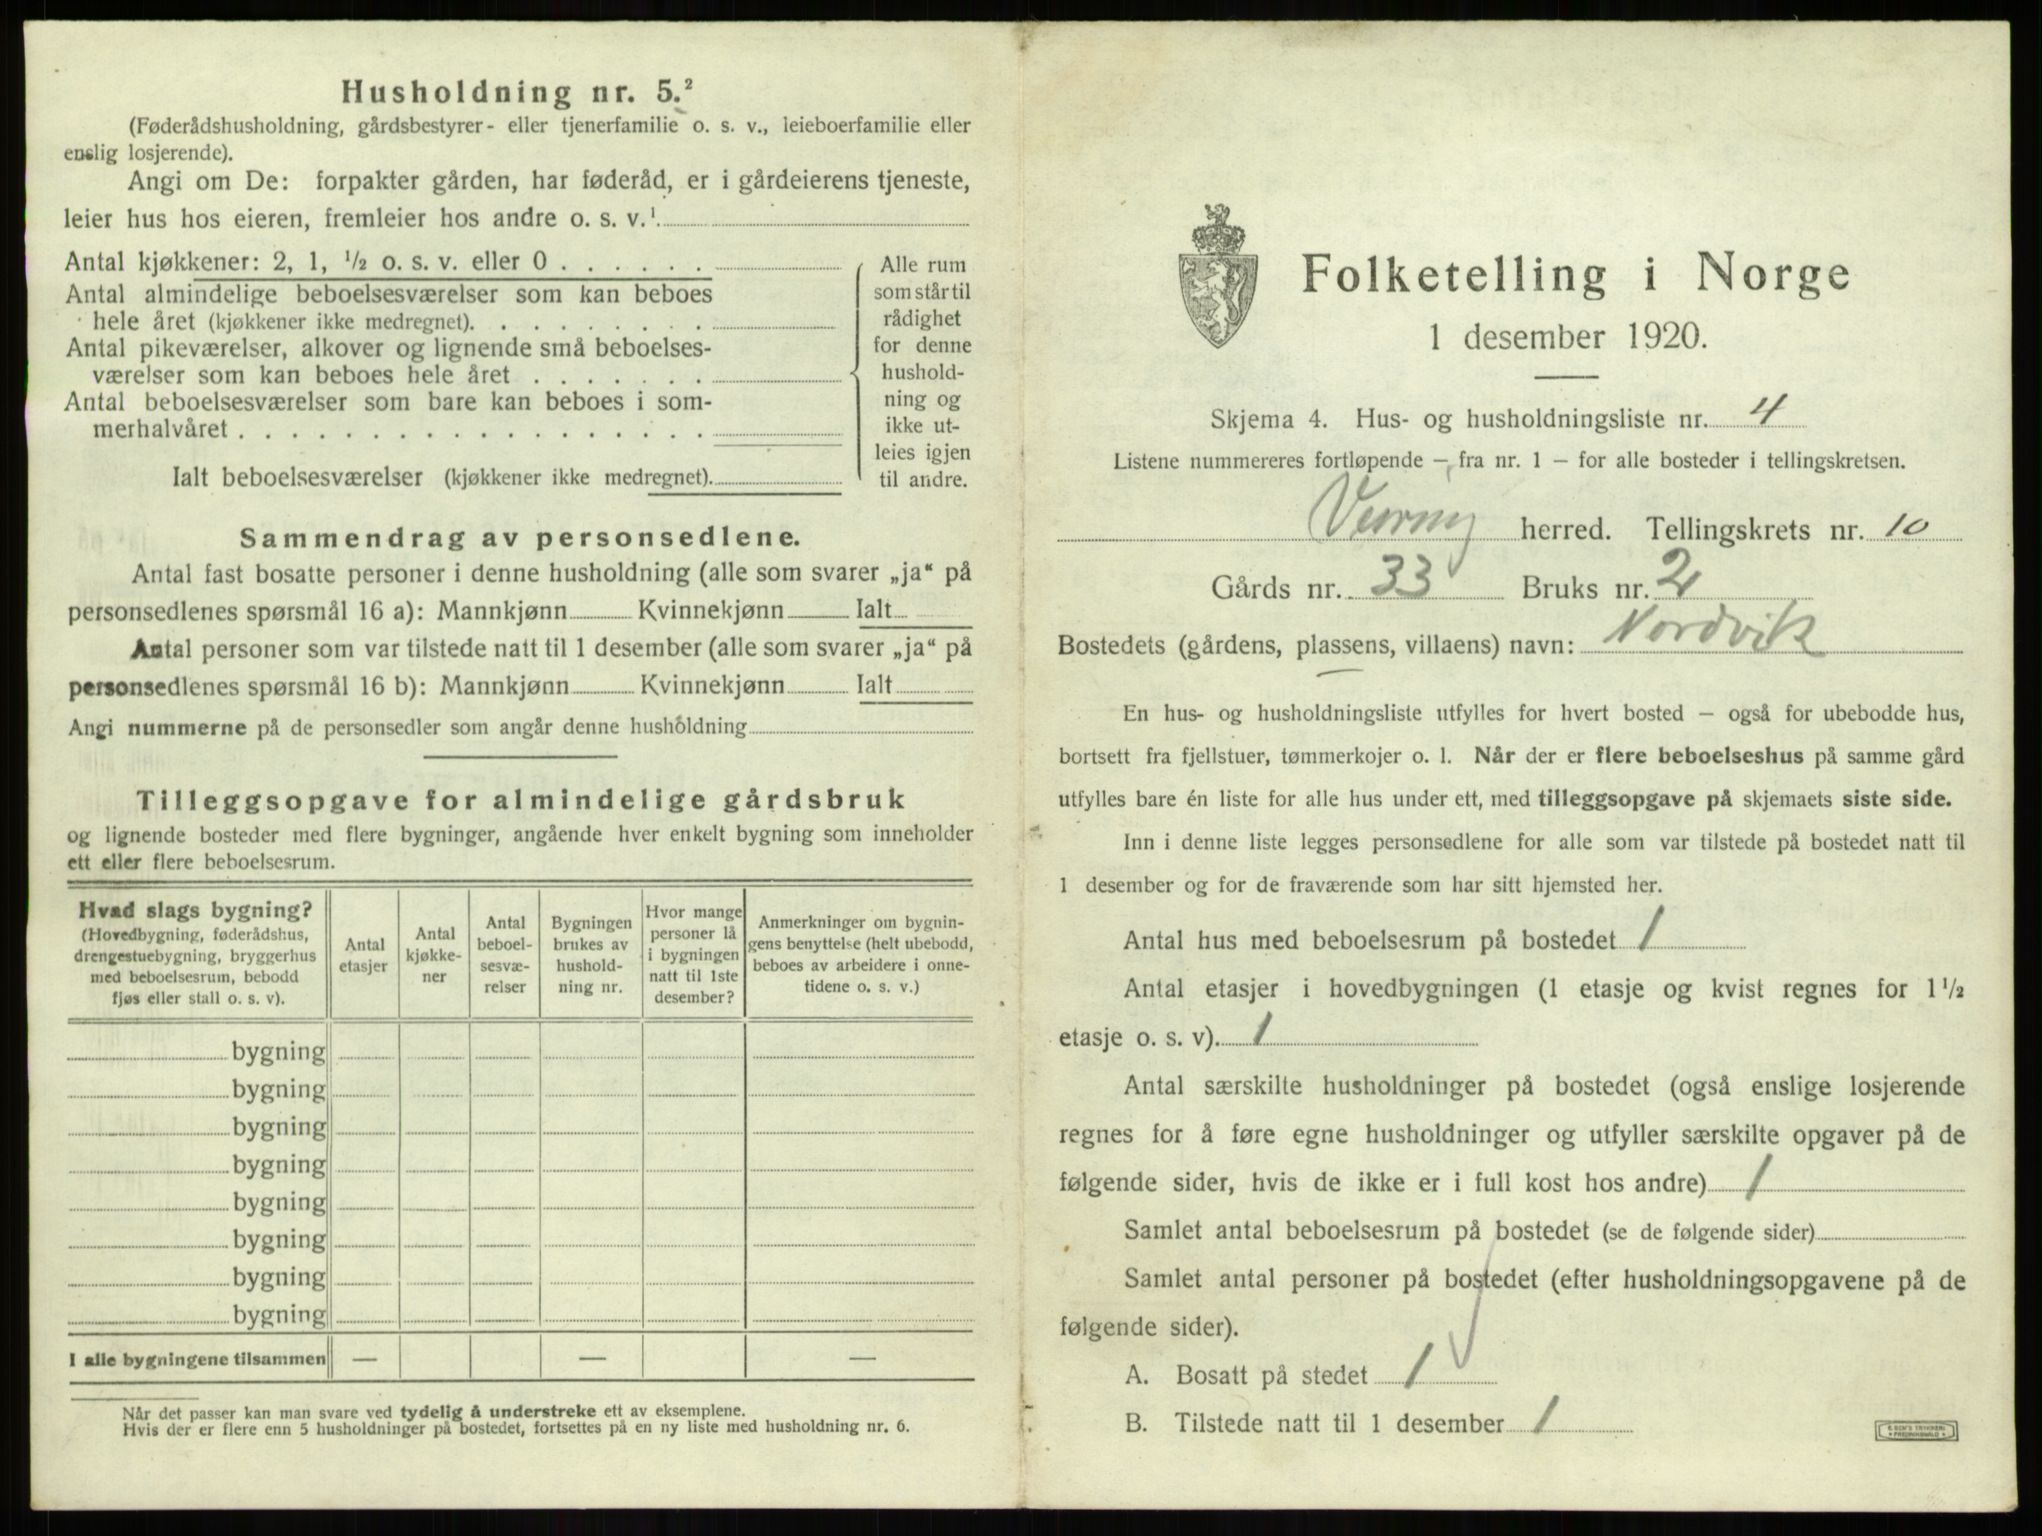 Husholdning nr. 5.²
(Føderådshusholdning, gårdsbestyrer- eller tjenerfamilie o. s. v., leieboerfamilie eller
enslig losjerende).
Angi om De: forpakter gården, har føderåd, er i gårdeierens tjeneste,
leier hus hos eieren, fremleier hos andre o. s. v.¹
Antal kjøkkener: 2, 1, ½ o. s. v. eller 0 . . . . . .
Antal almindelige beboelsesværelser som kan beboes
hele året (kjøkkener ikke medregnet). . . . . . . . .
Antal pikeværelser, alkover og lignende små beboelses-
værelser som kan beboes hele året . . . . . . .
Antal beboelsesværelser som bare kan beboes i som-
merhalvåret . . . . . . . . . . . . . . . . . .
Ialt beboelsesværelser (kjøkkener ikke medregnet).
Alle rum
som står til
rådighet
for denne
hushold-
ning og
ikke ut-
leies igjen
til andre.
Sammendrag av personsedlene.
Antal fast bosatte personer i denne husholdning (alle som svarer „ja“ på
personsedlenes spørsmål 16 a): Mannkjønn Kvinnekjønn Ialt
Antal personer som var tilstede natt til 1 desember (alle som svarer „ja“ på
personsedlenes spørsmål 16 b): Mannkjønn Kvinnekjønn Ialt
Angi nummerne på de personsedler som angår denne husholdning
Tilleggsopgave for almindelige gårdsbruk
og lignende bosteder med flere bygninger, angående hver enkelt bygning som inneholder
ett eller flere beboelsesrum.
Hvad slags bygning?
(Hovedbygning, føderådshus,
drengestuebygning, bryggerhus
med beboelsesrum, bebodd
fjøs eller stall o. s. v).
Antal
etasjer
Antal
kjøkke-
ner
Antal
beboel-
sesvæ-
relser
Bygningen
brukes av
hushold-
ning nr.
Hvor mange
personer lå
i bygningen
natt til 1ste
desember?
Anmerkninger om bygnin-
gens benyttelse (helt ubebodd,
beboes av arbeidere i onne-
tidene o. s. v.)
bygning
bygning
bygning
bygning
bygning
bygning
bygning
bygning
I alle bygningene tilsammen — — —
Når det passer kan man svare ved tydelig å understreke ett av eksemplene.
Hvis der er flere enn 5 husholdninger på bostedet, fortsettes på en ny liste med husholdning nr. 6.
Folketelling i Norge
1 desember 1920.
Skjema 4. Hus- og husholdningsliste nr. 4
Listene nummereres fortløpende – fra nr. 1 – for alle bosteder i tellingskretsen.
herred. Tellingskrets nr. 10
Gårds nr. 33 Bruks nr. 2
Bostedets (gårdens, plassens, villaens) navn: Nordvik
En hus- og husholdningsliste utfylles for hvert bosted – også for ubebodde hus,
bortsett fra fjellstuer, tømmerkojer o. l. Når der er flere beboelseshus på samme gård
utfylles bare én liste for alle hus under ett, med tilleggsopgave på skjemaets siste side.
Inn i denne liste legges personsedlene for alle som var tilstede på bostedet natt til
1 desember og for de fraværende som har sitt hjemsted her.
Antal hus med beboelsesrum på bostedet 1
Antal etasjer i hovedbygningen (1 etasje og kvist regnes for 1½
etasje o. s. v). 1
Antal særskilte husholdninger på bostedet (også enslige losjerende
regnes for å føre egne husholdninger og utfyller særskilte opgaver på de
følgende sider, hvis de ikke er i full kost hos andre) 1
Samlet antal beboelsesrum på bostedet (se de følgende sider)
Samlet antal personer på bostedet (efter husholdningsopgavene på de
følgende sider).
A. Bosatt på stedet 1
B. Tilstede natt til 1 desember 1